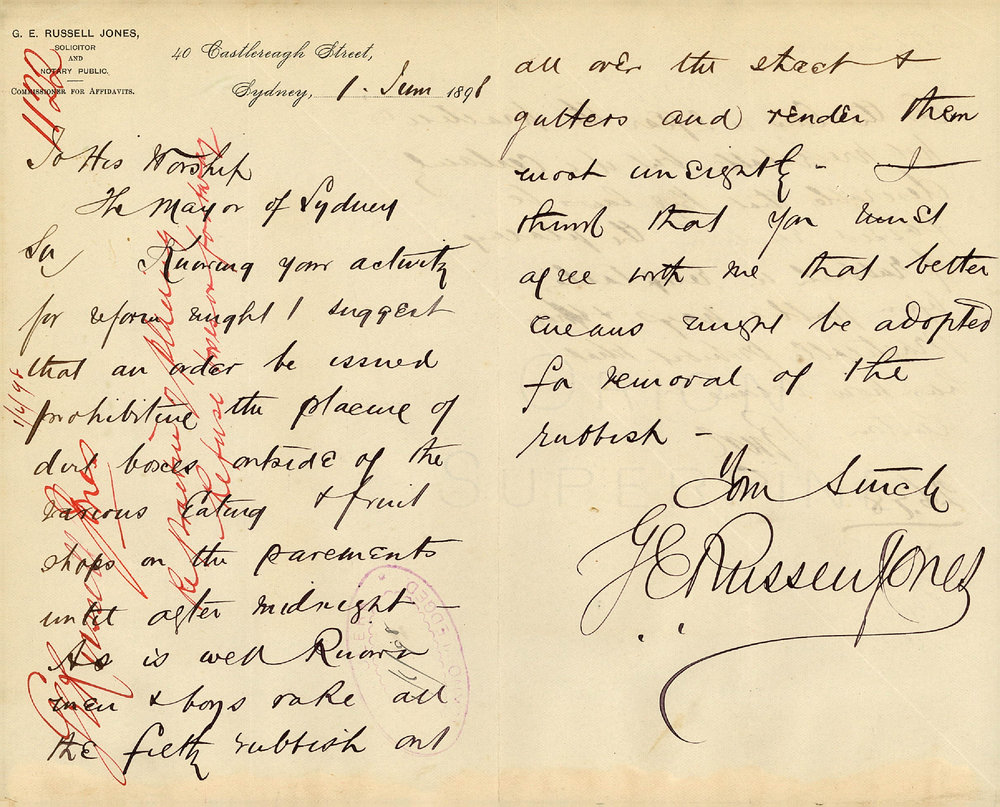 G. E. RUSSELL JONES,
SOLICITOR
AND
NOTARY PUBLIC.
COMMISSIONER FOR AFFIDAVITS.
40 Castlereagh Street,
Sydney, 1 June 1898
1120
To His Worship
The Mayor of Sydney
Sir Knowing your activity
for reform might I suggest
that an order be issued
prohibiting the placing of
dirt boxes outside of the
various Eating & fruit
shops on the pavements
until after midnight -
As is well Known
men & boys rake all
the filthy rubbish out
all over the street &
gutters and render them
most unsightly - I
think that you must
agree with me that better
means might be adopted
for removal of the
rubbish -
Yours Sincly
G E Russell Jones
G E Russell Jones
1/6/98
Re
placing
Refuse boxes on footway